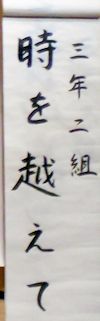 三年二組
時を越えて